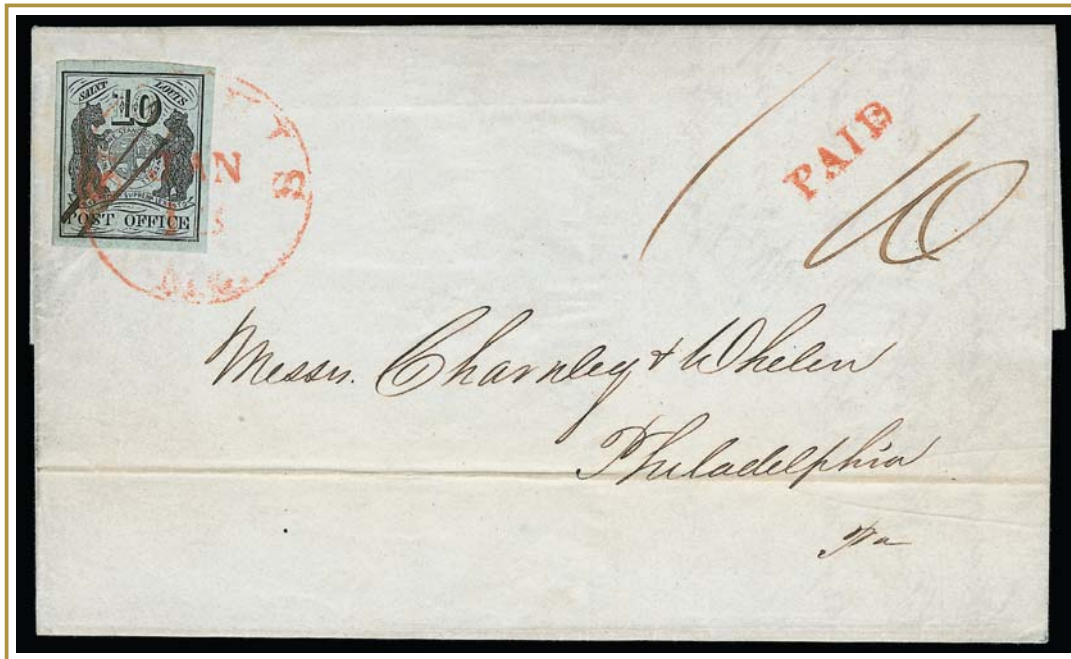 SAINT LOUIS
10
POST OFFICE
JAN
PAID
10
Messrs. Charnley & Whelen
Philadelphia
Pa